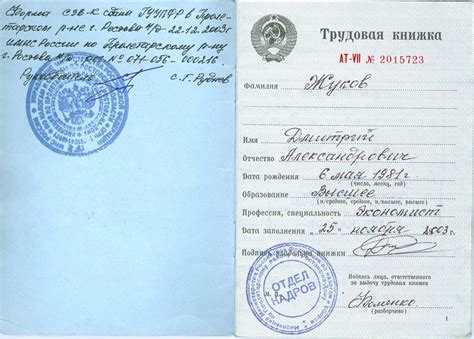 Сведения СЗВ-К сданы ГУУПФР в Проле-
тарском р-не г. Ростова н/Д 22.12.2003г
ИМНС России по Пролетарскому р-ну
г. Ростова н/Д рег. № 071-056-000216
Руководитель
Трудовая книжка
АТ-VII № 2015723
Фамилия Жуков
Имя Дмитрий
Отчество Александрович
Дата рождения 6 мая 1981г
(число, месяц, год)
Образование Высшее
(н/среднее, среднее, н/высшее, высшее)
Профессия, специальность Экономист
Дата заполнения „25" ноября 2003 г.
Подпись
ОТДЕЛ
КАДРОВ
Подпись лица, ответственного
за выдачу трудовых книжек
Фоменко
(разборчиво)
М. п.
1